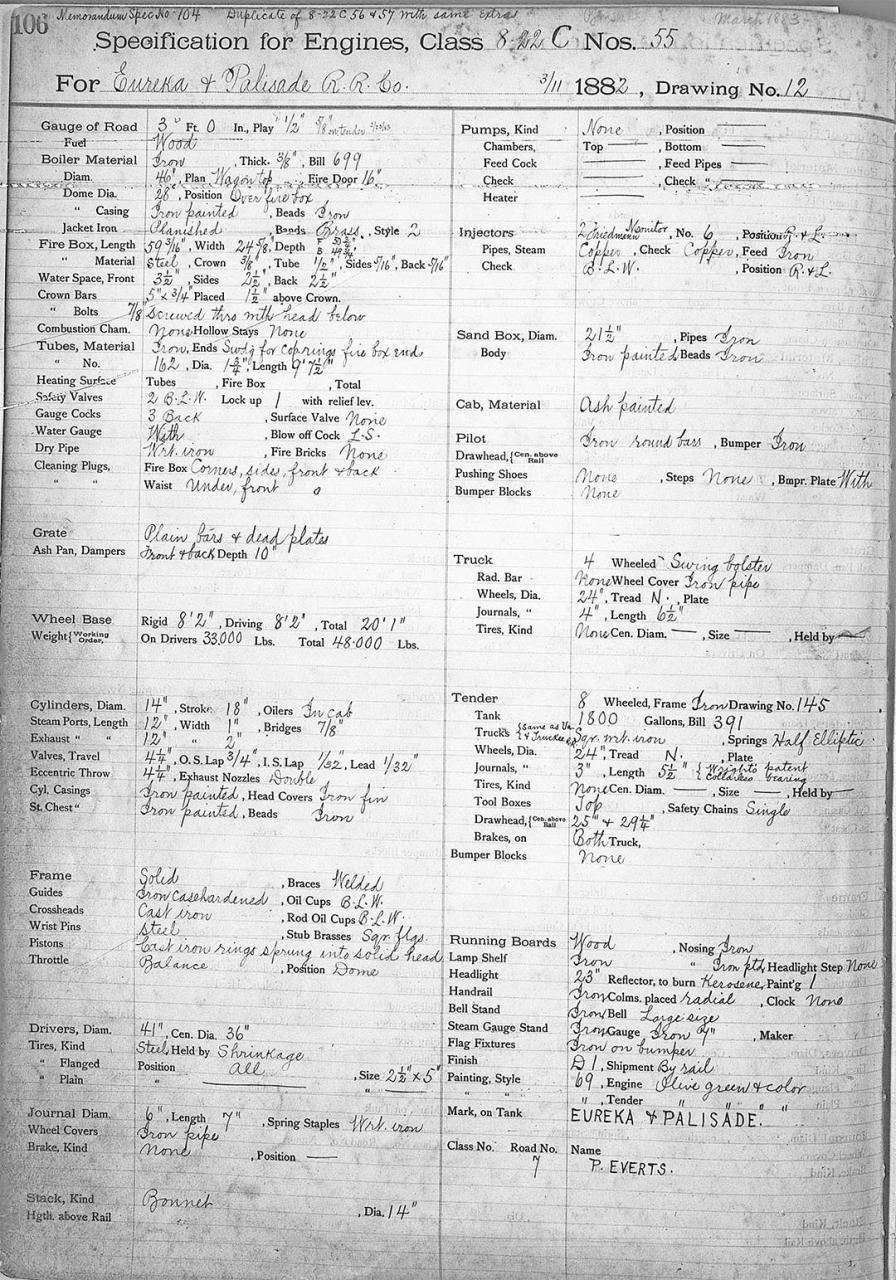 106
Memorandum Spec No 104 Duplicate of 8-22 C 56 & 57 with same extras March 1883
Specification for Engines, Class 8-22 C Nos. 55
For Eureka & Palisade R.R. Co. 3/11 1882, Drawing No. 12
Gauge of Road 3" Ft. 0 In., Play 1/2" 5/8 on tender
Fuel Wood
Boiler Material Iron, Thick. 3/8", Bill 699
Diam. 46", Plan Wagon top, Fire Door 16"
Dome Dia. 28, Position Over fire box
" Casing Iron painted, Beads Iron
Jacket Iron Planished, Bands Brass, Style 2
Fire Box, Length 59 3/16", Width 24 5/8", Depth F B
" Material Steel, Crown 3/8", Tube 1/2", Sides 5/16", Back 5/16"
Water Space, Front 3 1/2", Sides 2 1/2", Back 2 1/2"
Crown Bars 5" x 3/4" Placed 1 1/2" above Crown.
" Bolts 7/8" Screwed thro with head below
Combustion Cham. None Hollow Stays None
Tubes, Material Iron, Ends Swdg for cop rings fire box ends
" No. 162, Dia. 1 3/4", Length 9' 7 1/2"
Heating Surface Tubes , Fire Box , Total
Safety Valves 2 B.L.W. Lock up 1 with relief lev.
Gauge Cocks 3 Back, Surface Valve None
Water Gauge With, Blow off Cock L.S.
Dry Pipe Wrt. iron, Fire Bricks None
Cleaning Plugs, Fire Box Corners, sides, front & back
" " Waist Under, front
Grate Plain bars & dead plates
Ash Pan, Dampers Front & back Depth 10"
Wheel Base Rigid 8' 2", Driving 8' 2", Total 20' 1"
Weight { Working Order, On Drivers 33,000 Lbs. Total 48.000 Lbs.
Cylinders, Diam. 14", Stroke 18", Oilers In cab
Steam Ports, Length 12", Width 1", Bridges 7/8"
Exhaust " " 12" " 2"
Valves, Travel 4 1/4", O. S. Lap 3/4", I. S. Lap 1/32, Lead 1/32"
Eccentric Throw 4 1/4", Exhaust Nozzles Double
Cyl. Casings Iron painted, Head Covers Iron fin
St. Chest " Iron painted, Beads Iron
Frame Solid, Braces Welded
Guides Iron Casehardened, Oil Cups B.L.W.
Crossheads Cast iron, Rod Oil Cups B.L.W.
Wrist Pins Steel, Stub Brasses Sqr. flgs.
Pistons Cast iron rings sprung into solid head
Throttle Balance, Position Dome
Drivers, Diam. 41", Cen. Dia. 36"
Tires, Kind Steel Held by Shrinkage
" Flanged Position All, Size 2 1/2" x 5"
" Plain " "
Journal Diam. 6", Length 7", Spring Staples Wrt. iron
Wheel Covers Iron pipe
Brake, Kind None, Position —
Stack, Kind Bonnet
Hgth. above Rail , Dia. 14"
Pumps, Kind None, Position —
Chambers, Top —, Bottom —
Feed Cock —, Feed Pipes —
Check —, Check " —
Heater —
Injectors 2 Friedmann Monitor, No. 6, Position R. & L.
Pipes, Steam Copper, Check Copper, Feed Iron
Check B.L.W. , Position R. & L.
Sand Box, Diam. 21 1/2", Pipes Iron
Body Iron painted Beads Iron
Cab, Material Ash painted
Pilot Iron round bars, Bumper Iron
Drawhead, { Cen. above Rail
Pushing Shoes None, Steps None, Bmpr. Plate With
Bumper Blocks None
Truck 4 Wheeled Swing bolster
Rad. Bar None Wheel Cover Iron pipe
Wheels, Dia. 24", Tread N., Plate
Journals, " 4", Length 6 1/2"
Tires, Kind None Cen. Diam. —, Size —, Held by —
Tender 8 Wheeled, Frame Iron Drawing No. 145
Tank 1800 Gallons, Bill 391
Trucks { Same as Va & Truckee Sqr. wrt. iron, Springs Half Elliptic
Wheels, Dia. 24", Tread N. , Plate
Journals, " 3", Length 5 1/2" { Wright's patent Collarless bearing
Tires, Kind None Cen. Diam. —, Size —, Held by —
Tool Boxes Top, Safety Chains Single
Drawhead, { Cen. above Rail 25" & 29 1/4"
Brakes, on Both Truck,
Bumper Blocks None
Running Boards Wood, Nosing Iron
Lamp Shelf Iron " Iron ptd, Headlight Step None
Headlight 23" Reflector, to burn Kerosene, Paint'g 1
Handrail Iron Colms. placed radial, Clock None
Bell Stand Iron Bell Large size
Steam Gauge Stand Iron Gauge Iron 7", Maker
Flag Fixtures Iron on bumper
Finish D 1, Shipment By rail
Painting, Style 69, Engine Olive green & color
" " " , Tender " " " "
Mark, on Tank EUREKA & PALISADE.
Class No. Road No. Name
7 P. EVERTS.